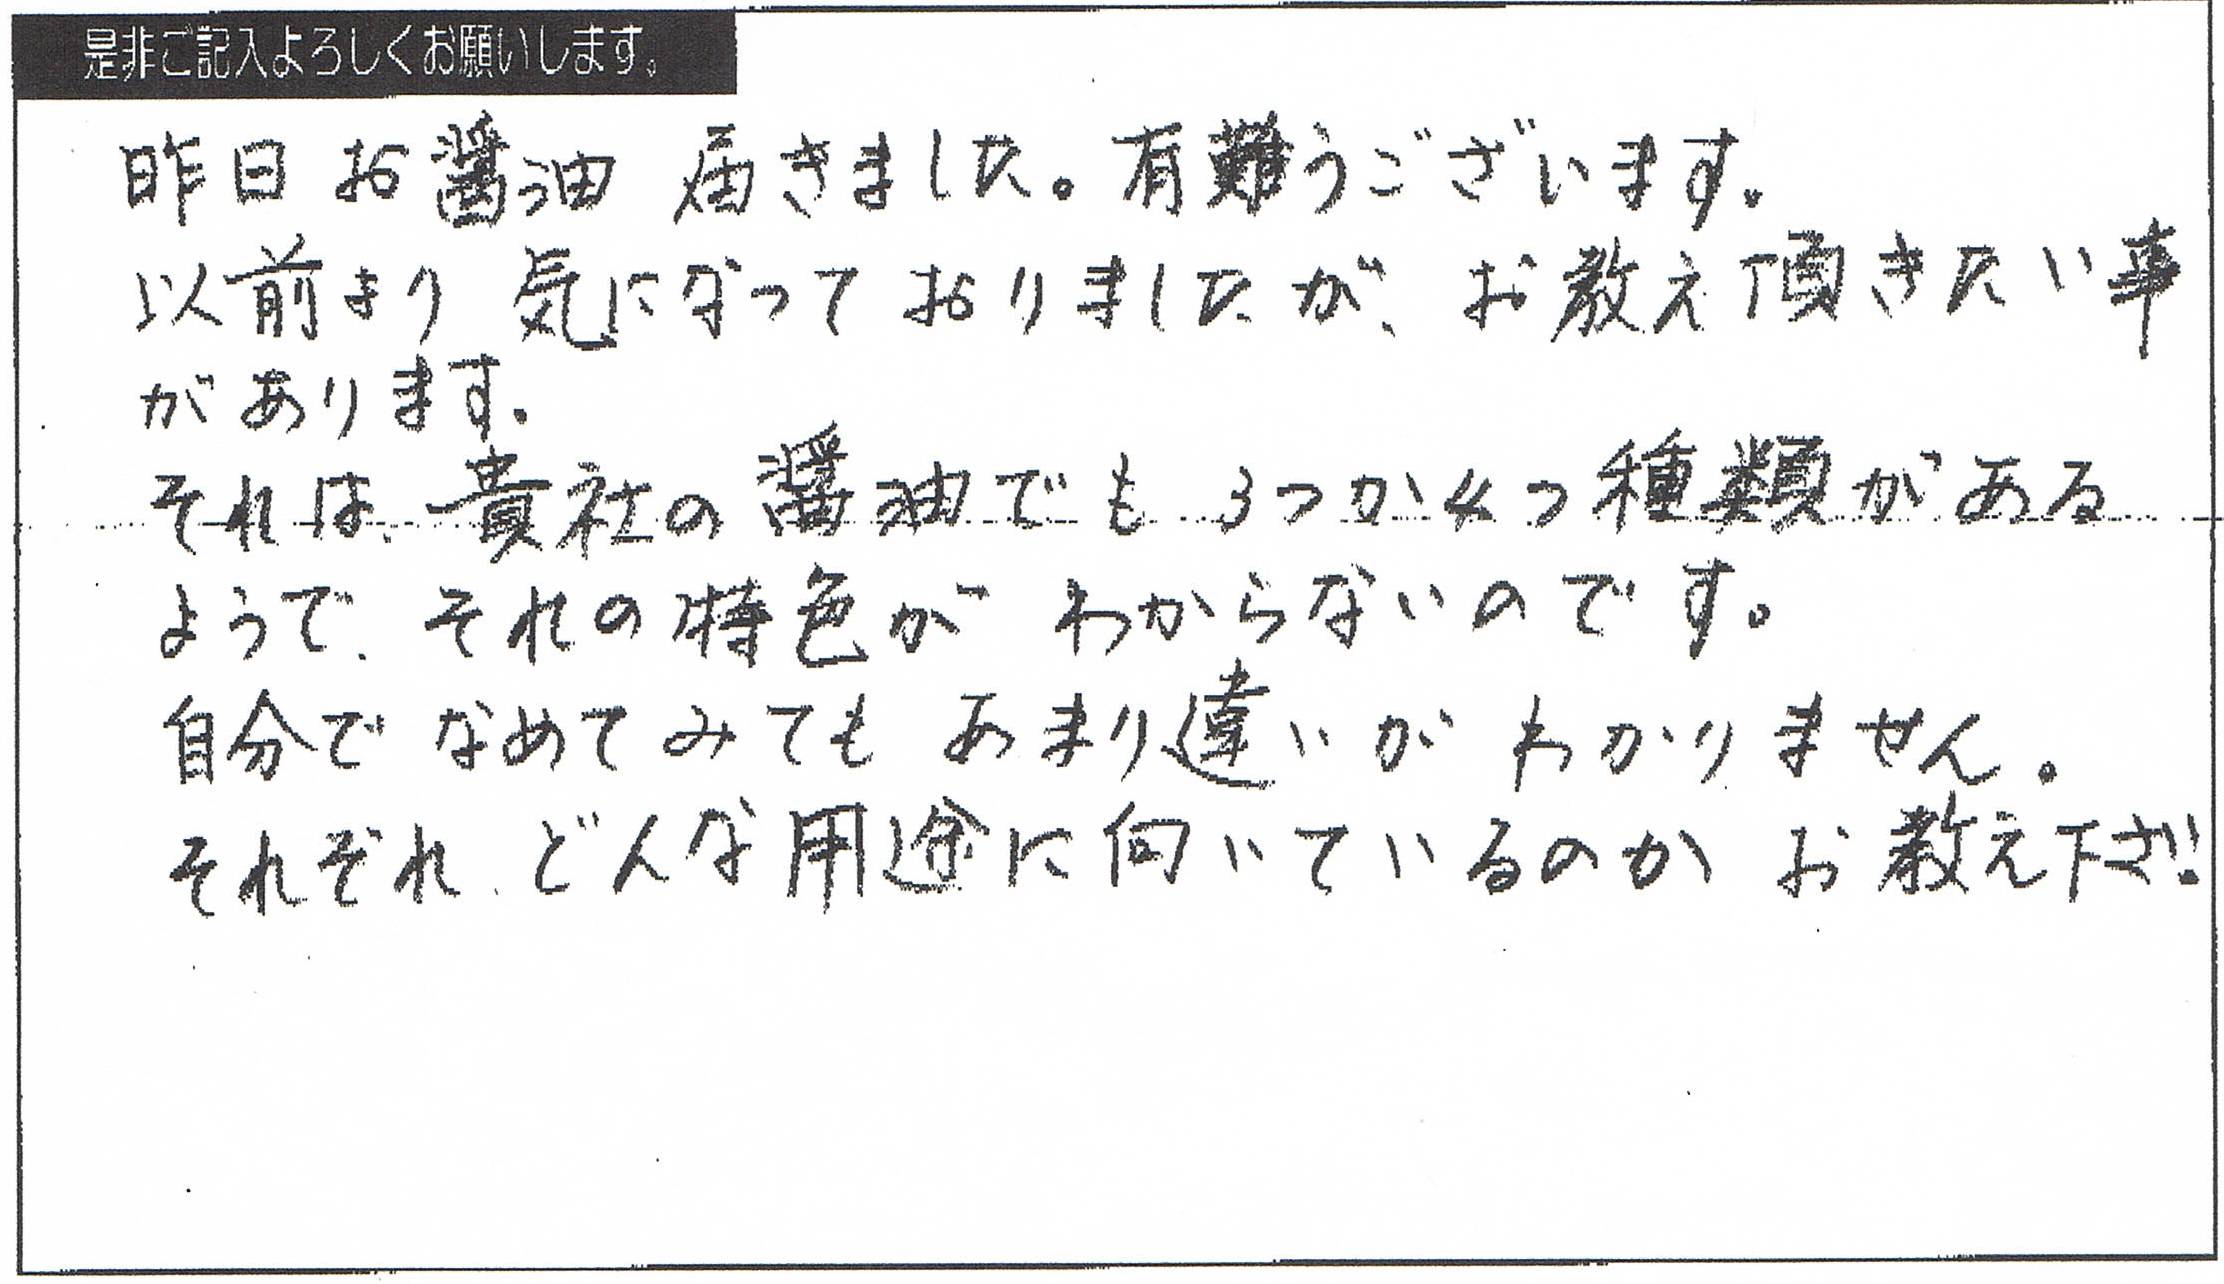 是非ご記入よろしくお願いします。
昨日 お醤油 届きました。有難うございます。
以前より 気になっておりましたが、お教え頂きたい事
があります。
それは、貴社の醤油でも 3つか4つ種類がある
ようで、それの特色が わからないのです。
自分で なめてみても あまり違いが わかりません。
それぞれ、どんな用途に向いているのか お教え下さい。